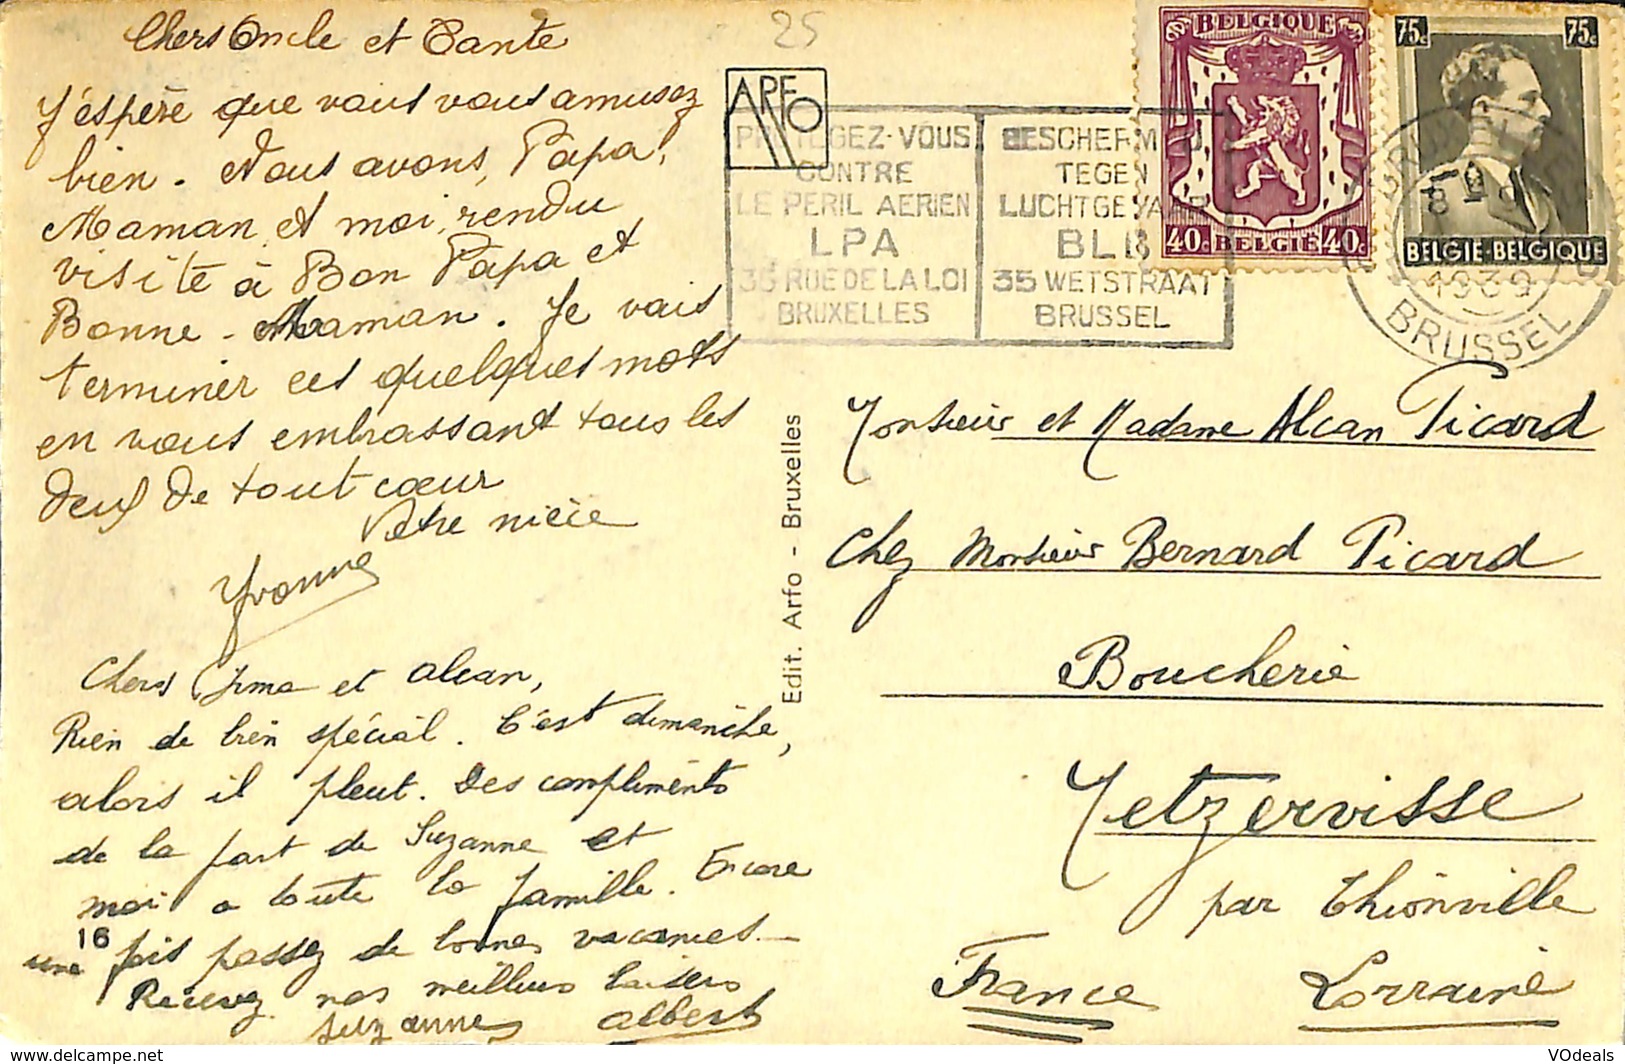 Chers Oncle et Tante
J'éspère que vous vous amusez
bien. Nous avons, Papa,
Maman et moi, rendu
visite à Bon Papa et
Bonne-Maman. Je vais
terminer ces quelques mots
en vous embrassant tous les
deux de tout cœur
Votre nièce
Yvonne
Chers Irma et Alcan,
Rien de bien spécial. C'est dimanche,
alors il pleut. Des compliments
de la part de Suzanne et
moi a toute la famille. Encore
une fois passez de bonnes vacances.
16
Recevez nos meilleurs baisers
Suzanne Albert
25
ARFO
PROTEGEZ-VOUS
CONTRE
LE PERIL AERIEN
LPA
35 RUE DE LA LOI
BRUXELLES
BESCHERM U
TEGEN
LUCHTGEVAAR
BLB
35 WETSTRAAT
BRUSSEL
BELGIQUE
40c BELGIË 40c
75c 75c
BELGIE-BELGIQUE
1939
BRUSSEL
Edit. Arfo - Bruxelles
Monsieur et Madame Alcan Picard
Chez Monsieur Bernard Picard
Boucherie
Metzervisse
par Thionville
France Lorraine
delcampe.net
VOdeals